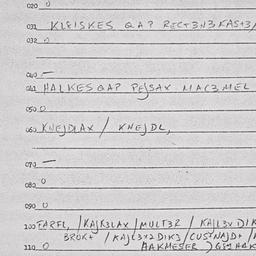 020 0
031 KLEISKES QAP RECT3N3KAST3/
032 0
040 —
041 HALKESQAP PEJSAX MAC3MEL
050 0
060 KNEJDLAX / KNEJDL,
070 —
080 0
090 0
100 FARFL, /KAJK3LAX/MULT3R / KAJL3X DIK
BROK+ /KAJL3X2 DIK3/CUSTNAJD+ /
110 0 HAKMESER)